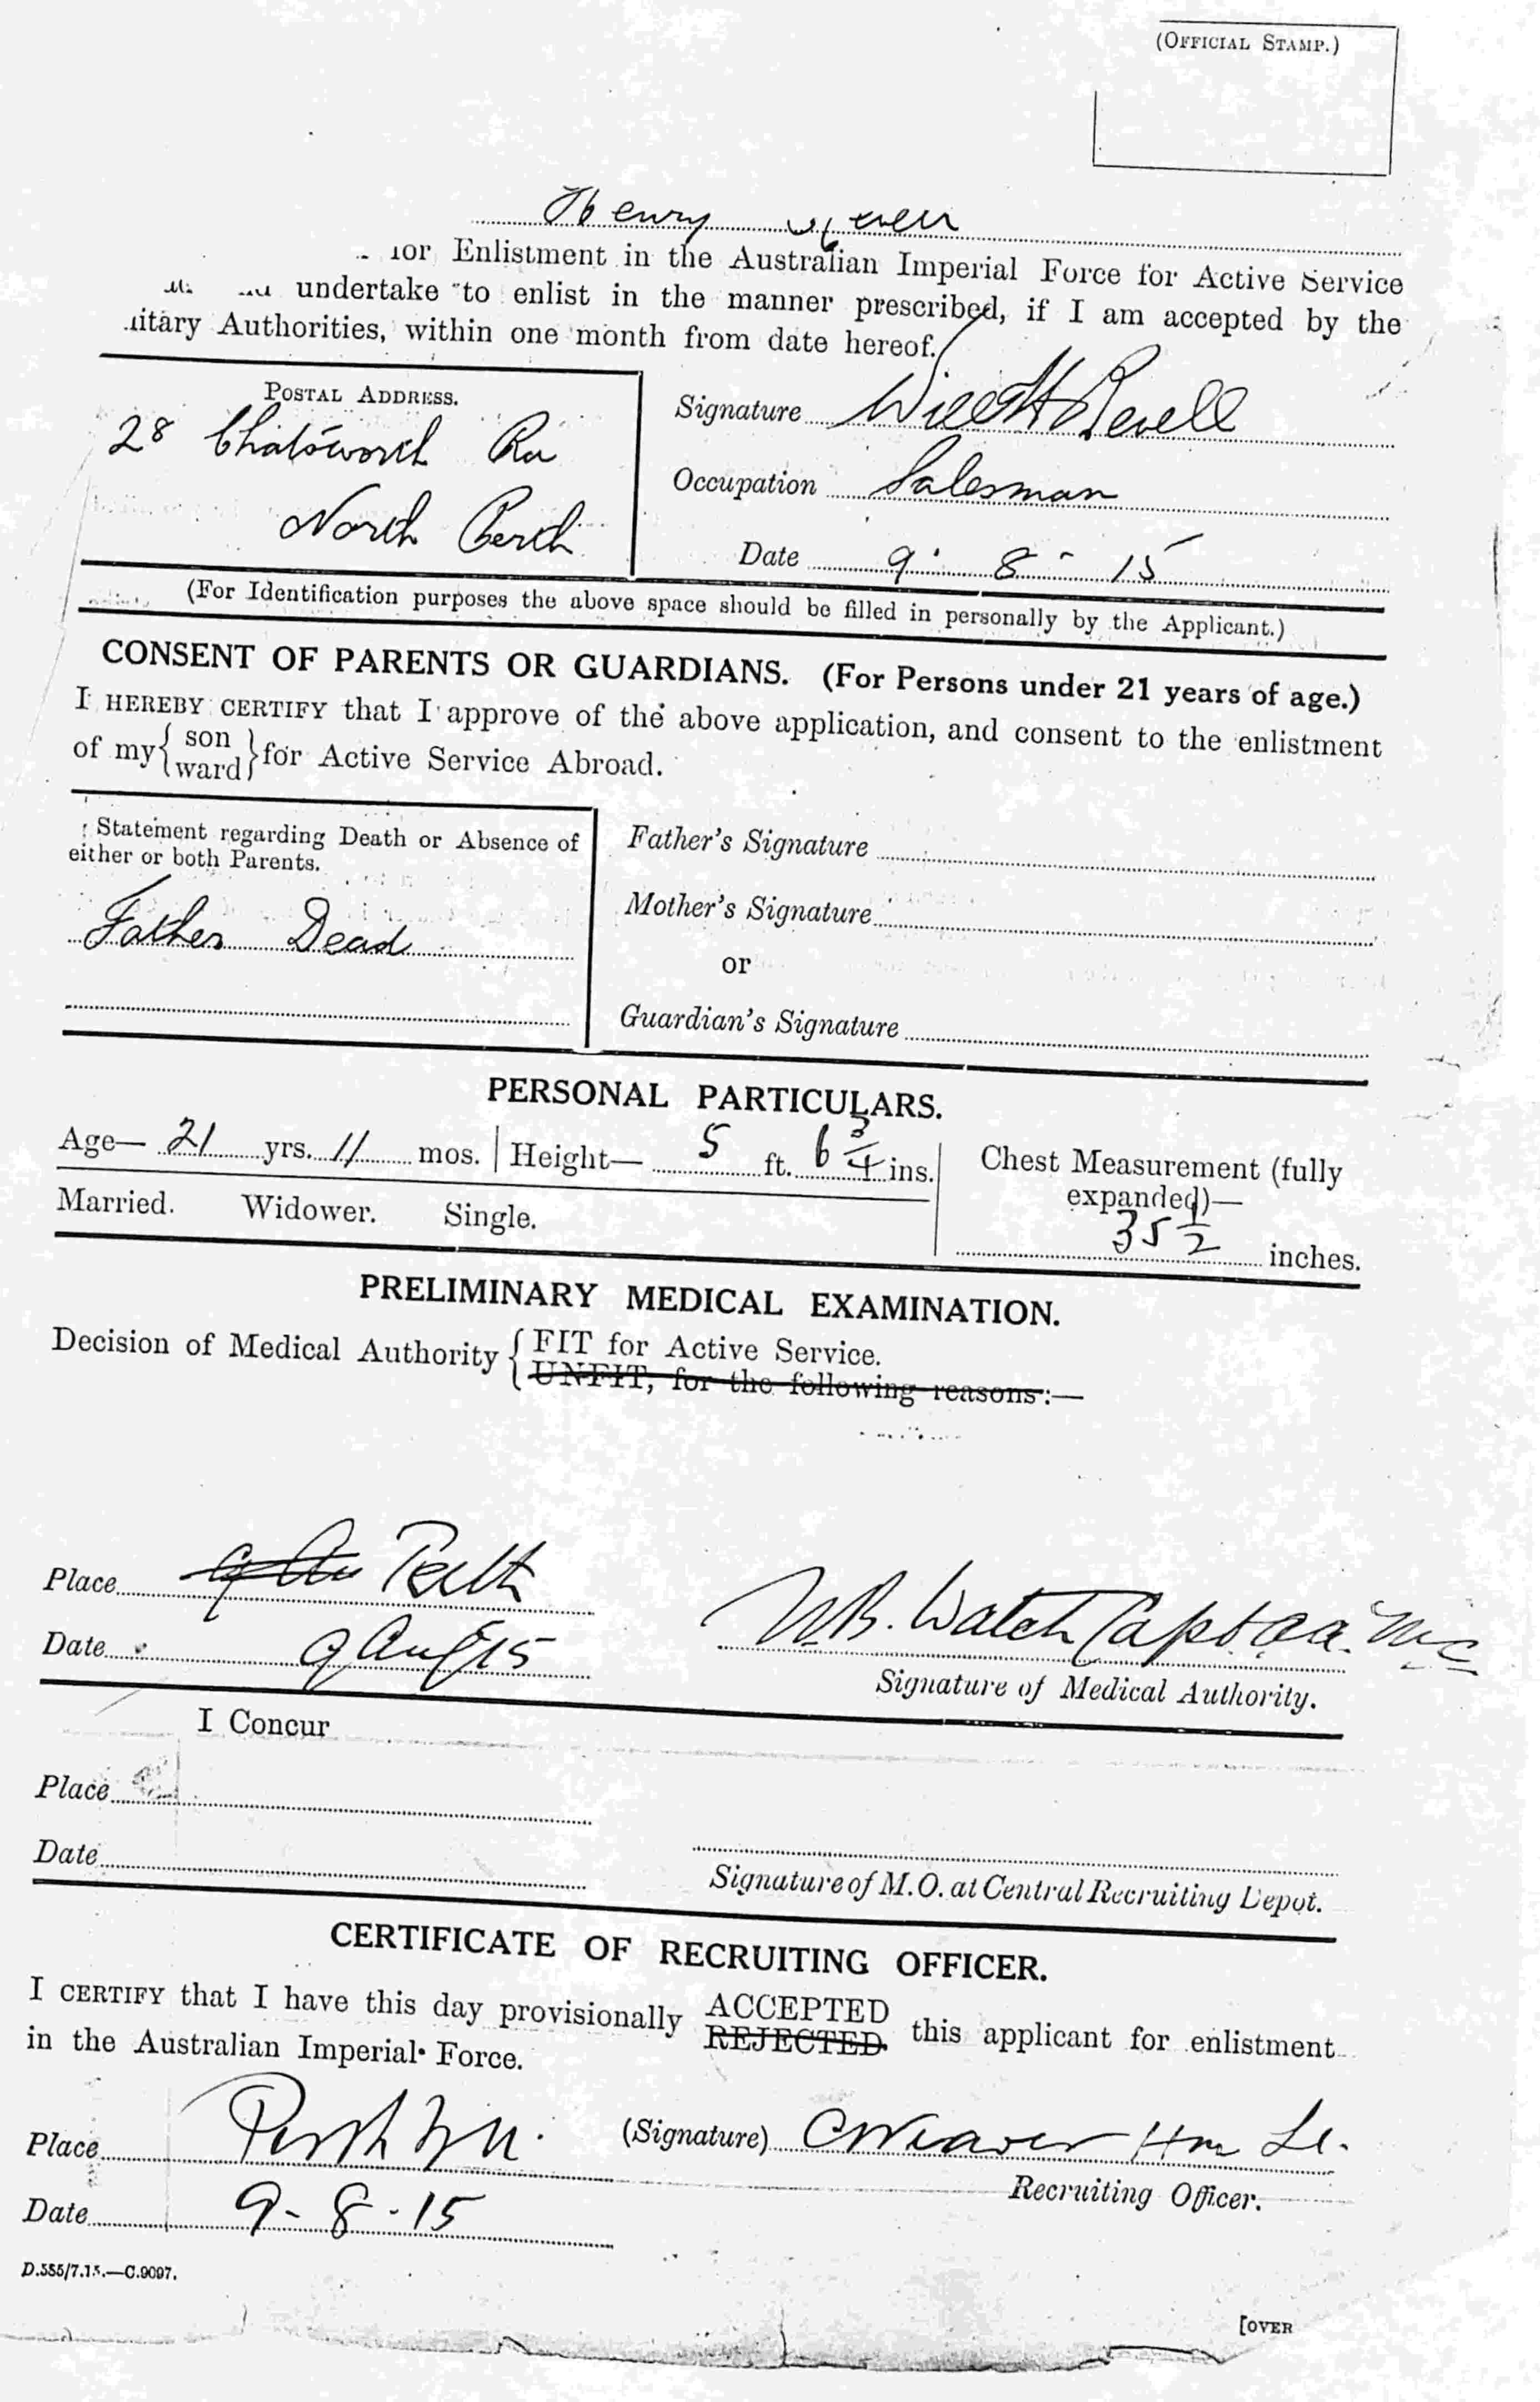 (OFFICIAL STAMP.)
Henry
Enlistment in the Australian Imperial Force for Active Service
undertake to enlist in the manner prescribed, if I am accepted by the
itary Authorities, within one month from date hereof.
POSTAL ADDRESS.
28 Chatsworth Rd
North Perth
Signature Will H Revell
Occupation Salesman
Date 9 . 8 - 15
(For Identification purposes the above space should be filled in personally by the Applicant.)
CONSENT OF PARENTS OR GUARDIANS. (For Persons under 21 years of age.)
I HEREBY CERTIFY that I approve of the above application, and consent to the enlistment
of my { son ward } for Active Service Abroad.
Statement regarding Death or Absence of
either or both Parents.
Father Dead
Father's Signature
Mother's Signature
or
Guardian's Signature
PERSONAL PARTICULARS.
Age— 21 yrs. 11 mos. Height— 5 ft. 6 3/4 ins.
Chest Measurement (fully
expanded)—
35 1/2 inches.
Married. Widower. Single.
PRELIMINARY MEDICAL EXAMINATION.
Decision of Medical Authority { FIT for Active Service.
UNFIT, for the following reasons:—
Place Perth
Date 9 Aug 15
Capt aa.mc
Signature of Medical Authority.
I Concur
Place
Date
Signature of M.O. at Central Recruiting Depot.
CERTIFICATE OF RECRUITING OFFICER.
I CERTIFY that I have this day provisionally ACCEPTED REJECTED. this applicant for enlistment
in the Australian Imperial Force.
Place Perth
(Signature) C Weaver Hm Lt.
Recruiting Officer.
Date 9 - 8 - 15
D.555/7.15.—C.9097.
[OVER